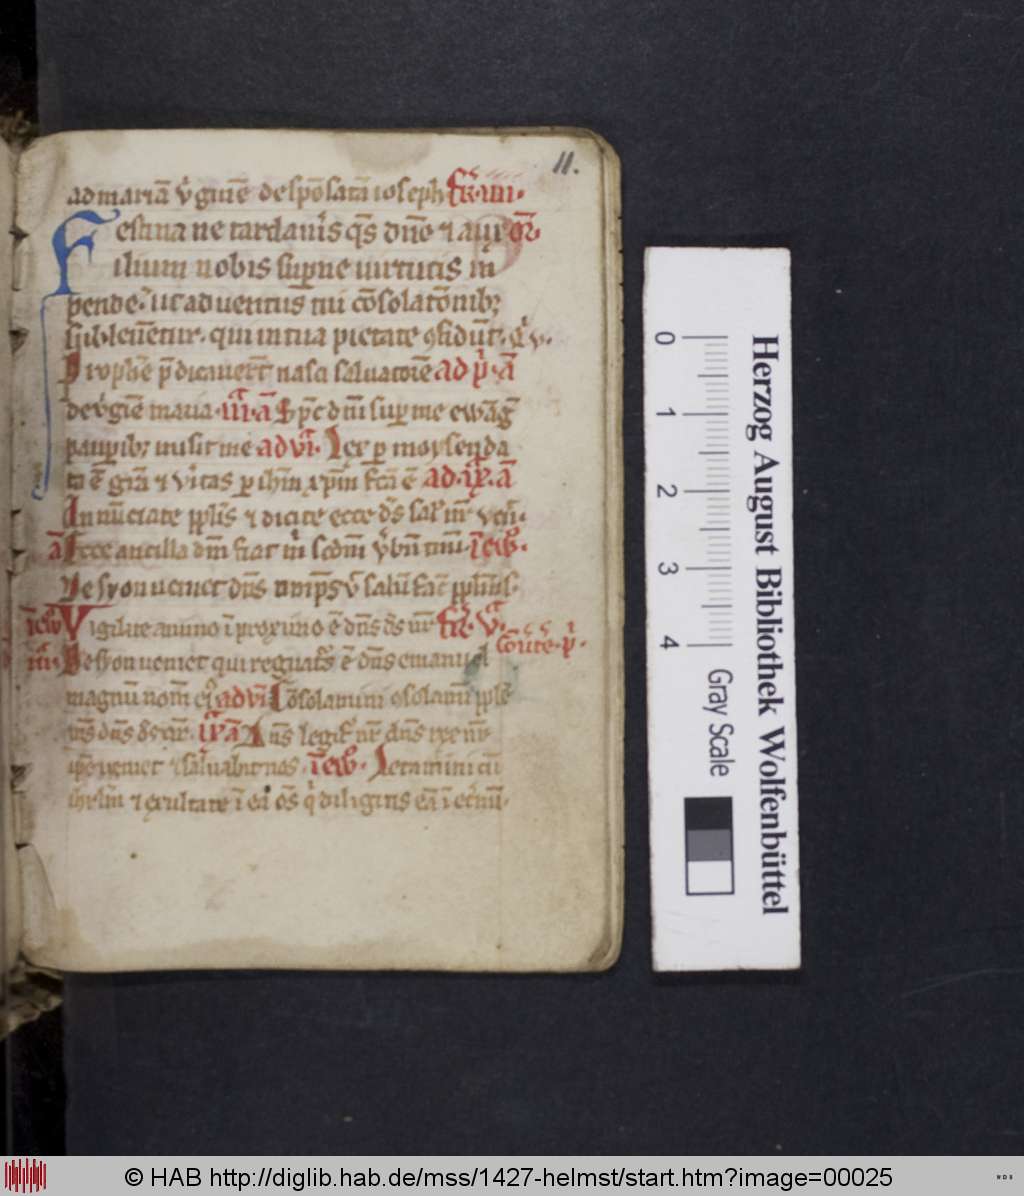 11.
ad mariā v̓ginē despōsatā ioseph Fr̄. iiii.
Festina ne tardau̓is q̄s dn̄e ⁊ auxi or̄.
filium nobis supne uirtutis ī
pende. ut aduentus tui cōsolatōnib;
subleuent̄. qui in tua pietate ɔfidūt. q̓ v.
Prophē p̄dicauer̄t nasci saluatorē ad p̓. ā
de v̓ginē maria. iii. ā Sp̄c dn̄i sup me ewāḡ
paupib; misit me ad vi. Lex p moysen da
ta ē gr̄a ⁊ v̓itas p ihm̄ xp̄m fc̄a ē ad. ix. ā
Annūctate pplis ⁊ dicite ecce ds̄ sal̓ nr̄ ven̄.
ā Ecce ancilla dn̄i fiat m̓ scdm̄ v̓bū tuū. ī ew̄.
De syon ueniet dn̄s omps̄ ut saluū fac̄ pplm̄ s.
īew̄ Vigilate animo ī proximo ē dn̄s ds̄ nr̄ Fr̄. v.
Cōītē. p̓.
iii. De syon ueniet qui regnat̓us ē dn̄s emanuel
magnū nom̄ ei̓ ad vi Cōsolamini ɔsolamī pple
ms̄ dn̄s ds̄ vr̄. ix. ā Dn̄s legif̓ nr̄ dn̄s rex nr̄
ip̄e ueniet ⁊ saluabit nos. ī ew̄. Letamini cū
ihrlm̄ ⁊ exultate ī ea os̄ q̓ diligitis eā ī etnū.
Herzog August Bibliothek Wolfenbüttel
0 1 2 3 4
Gray Scale
© HAB http://diglib.hab.de/mss/1427-helmst/start.htm?image=00025